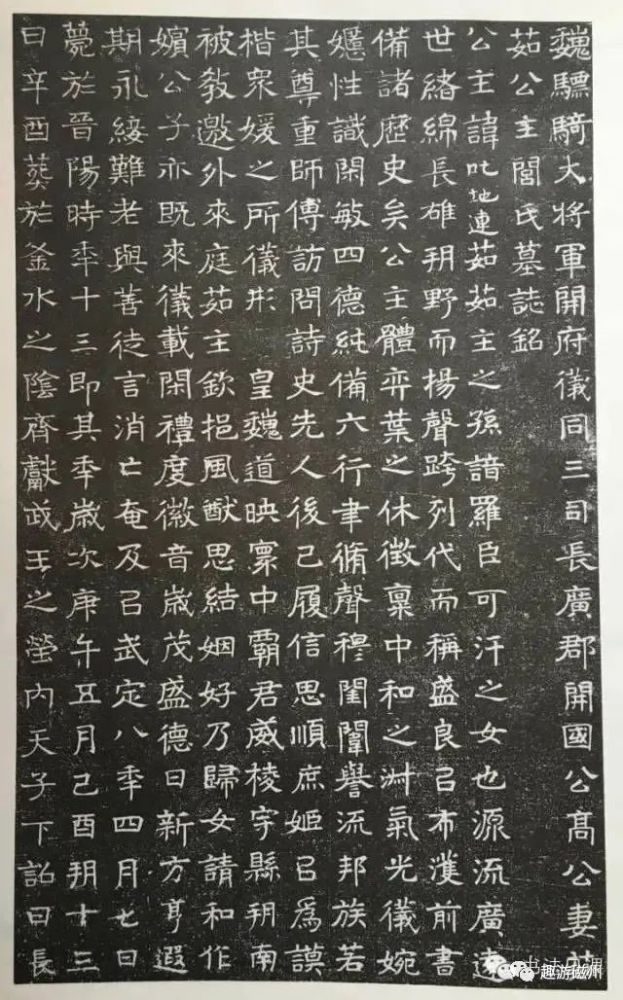 魏驃騎大將軍開府儀同三司長廣郡開國公高公妻茹
茹公主閭氏墓誌銘
公主諱叱地連茹茹主之孫諳羅臣可汗之女也源流廣遠
世緒綿長雄朔野而揚聲跨列代而稱盛良㠯布濩前書
備諸歷史矣公主體弈葉之休徵稟中和之淑氣光儀婉
嬺性識閑敏四德純備六行聿脩聲穆閨闈譽流邦族若
其尊重師傅訪問詩史先人後己履信思順庶姬㠯為謨
楷眾媛之所儀形 皇魏道映寰中霸君威棱宇縣朔南
被教邀外來庭茹主欽挹風猷思結姻好乃歸女請和作
嬪公子亦既來儀載閑禮度徽音歲茂盛德日新方亨遐
期永綏難老與善徒言消亡奄及㠯武定八年四月七日
薨於晉陽時年十三即其年歲次庚午五月己酉朔十三
日辛酉葬於釜水之陰齊獻武王之塋內天子下詔曰長
趣游磁州